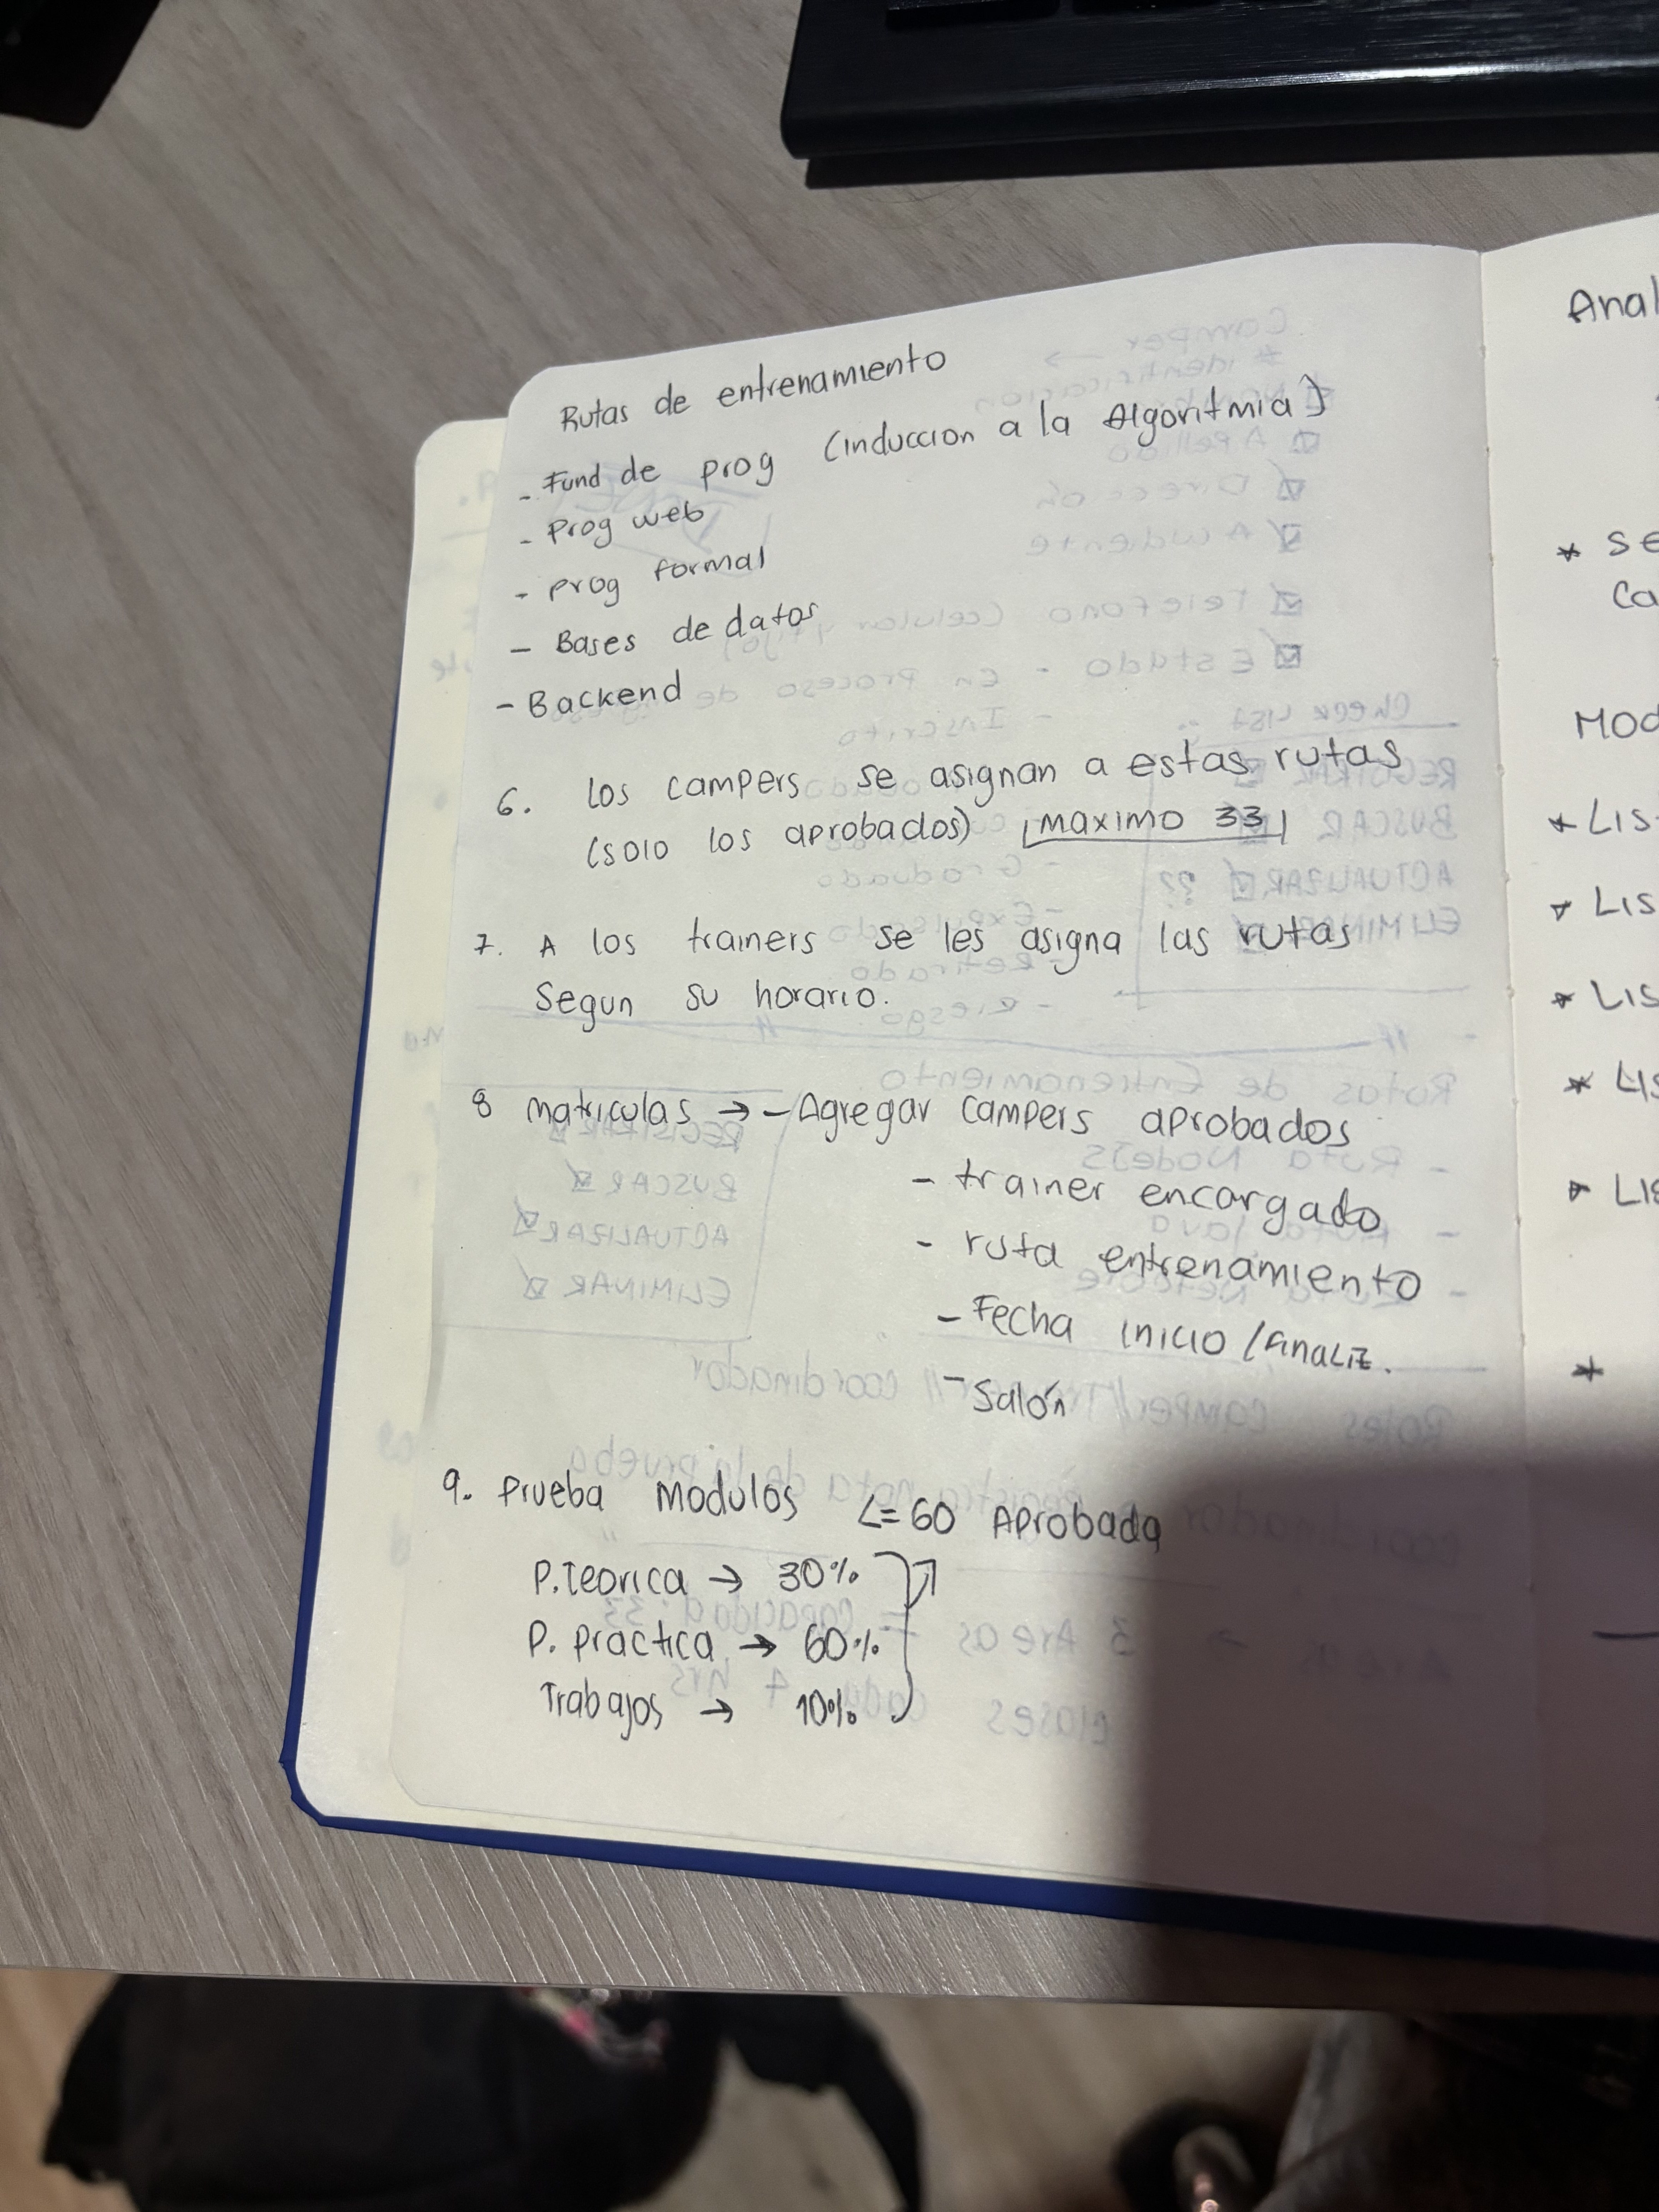 Rutas de entrenamiento
- Fund de prog (induccion a la Algoritmia)
- Prog web
- prog formal
- Bases de datos
- Backend
6. los campers se asignan a estas rutas
(solo los aprobados) maximo 33
7. A los trainers se les asigna las rutas
Segun su horario.
8 matriculas → - Agregar campers aprobados
- trainer encargado
- ruta entrenamiento
- Fecha inicio / finaliz.
- Salón
9. Prueba Modulos <=60 Aprobada
P. Teorica → 30%
P. practica → 60%
Trabajos → 10%
Anal
* se
Ca
Mod
* Lis
* Lis
* Lis
* Lis
* Lis
*